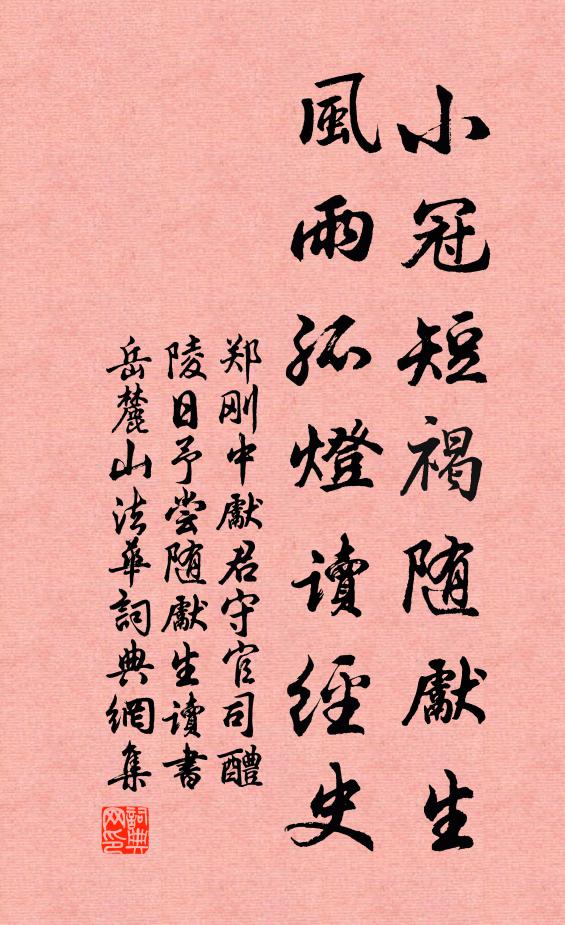 小冠短褐随獻生
風雨孤燈讀經史
郑刚中獻君守官司醴
陵日予尝随獻生讀书
岳麓山法華詞典網集
詞典网印